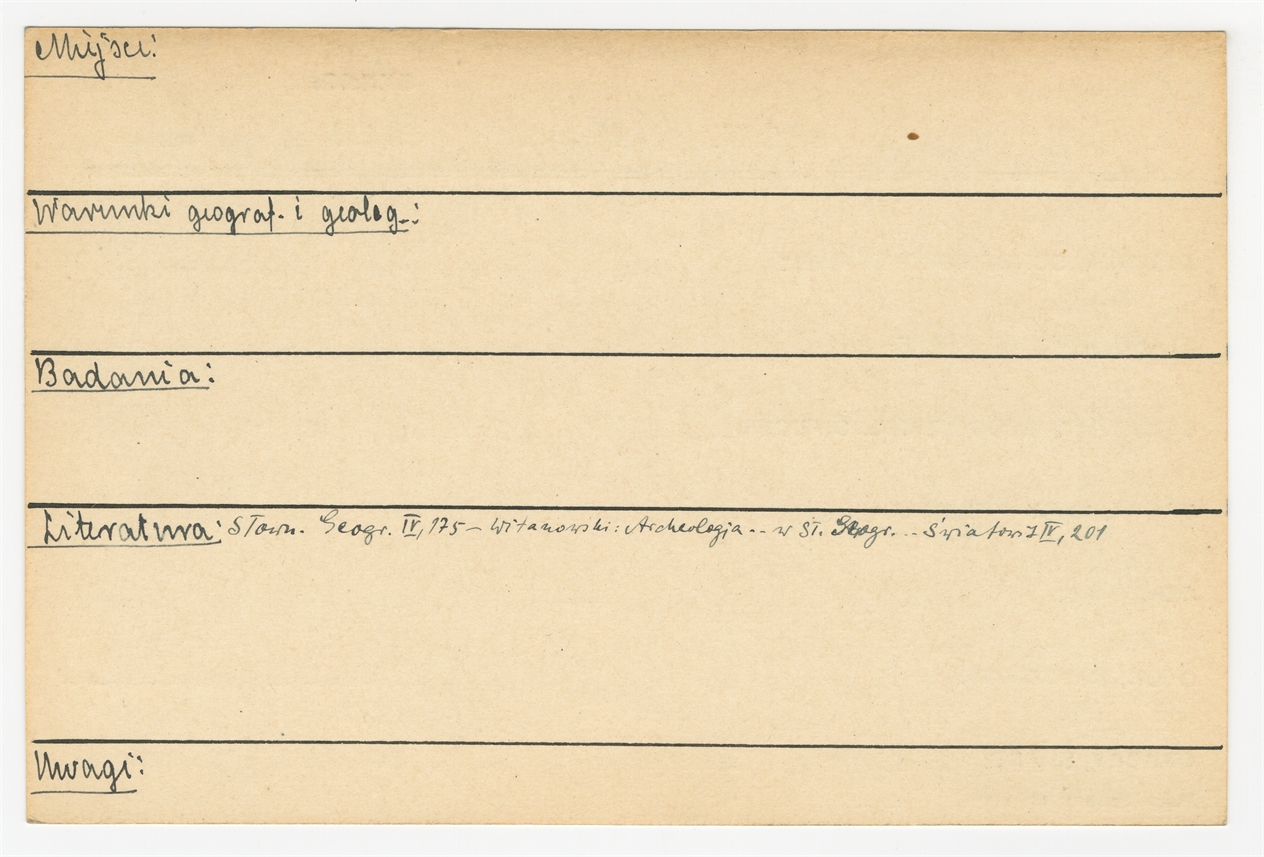 Miejsce:
Warunki geograf. i geolog.:
Badania:
Literatura: Słown. Geogr. IV, 175 – Witanowski: Archeologja .. w Sł. Geogr. .. Światowit IV, 201
Uwagi: